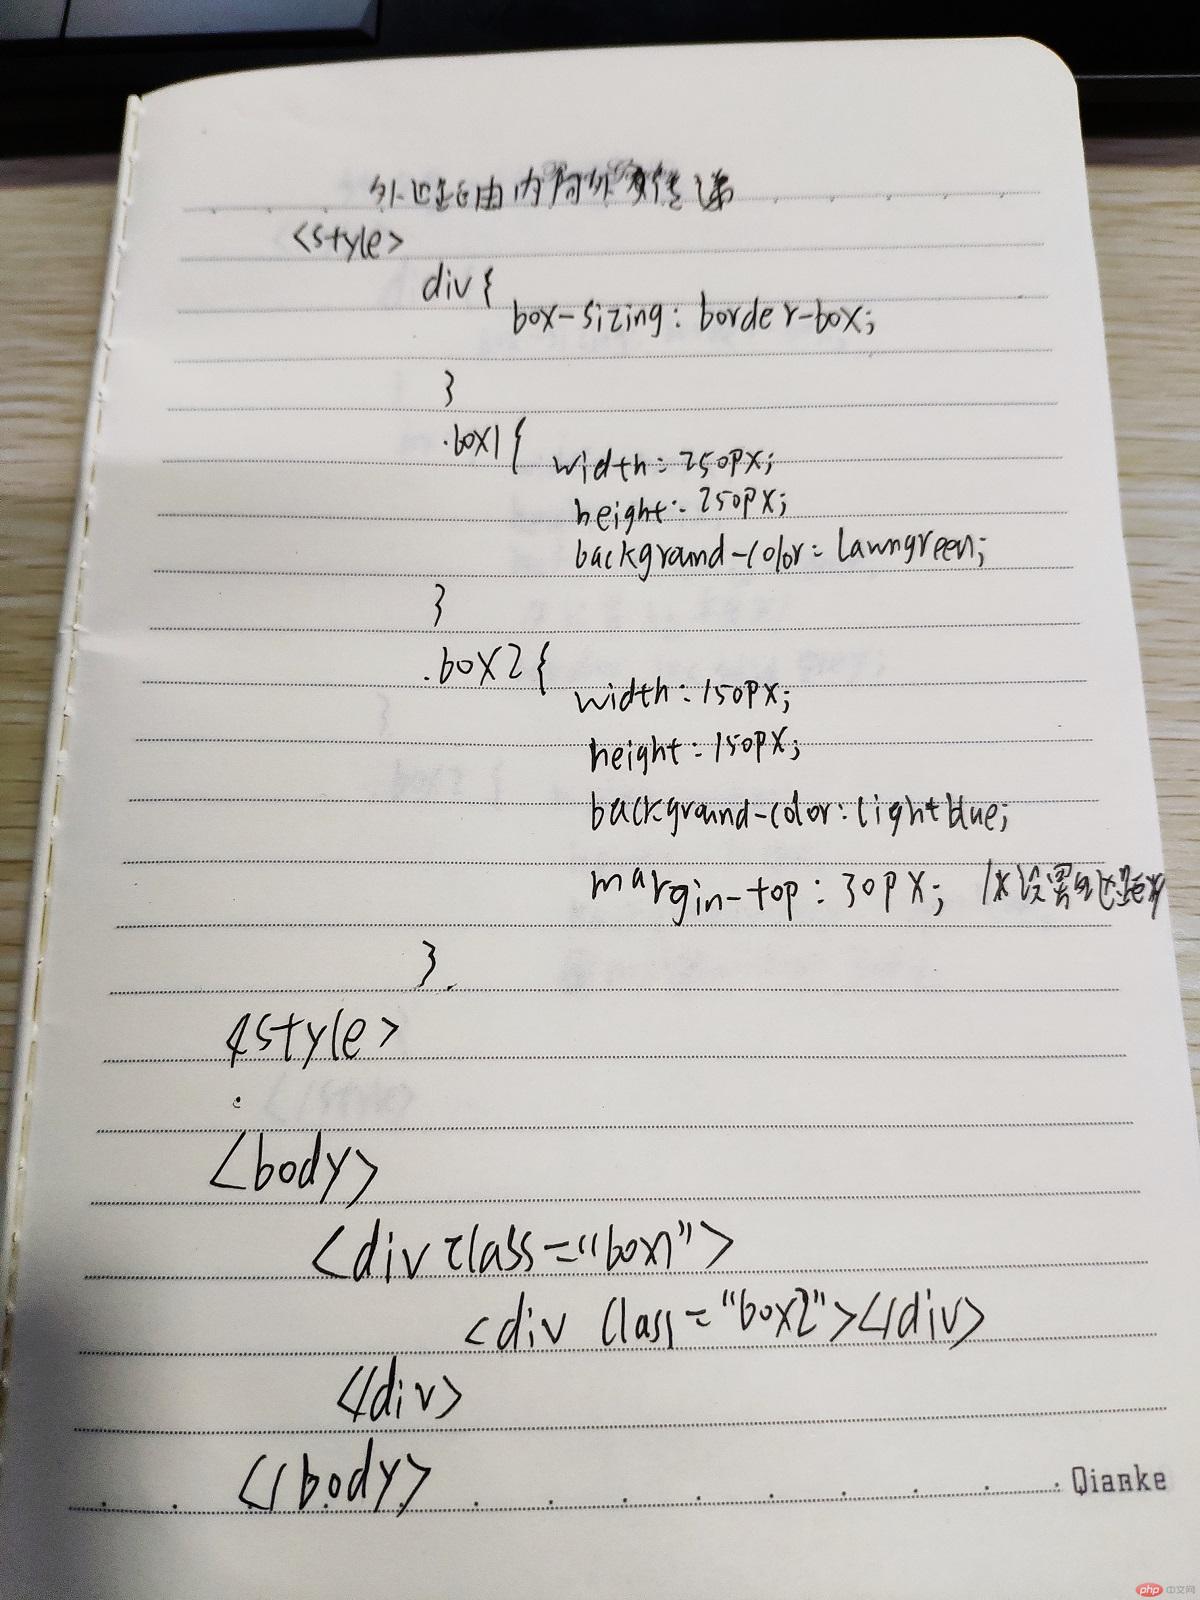 外边距由内向外传递
<style>
div {
box-sizing: border-box;
}
.box1 {
width: 250px;
height: 250px;
background-color: lawngreen;
}
.box2 {
width: 150px;
height: 150px;
background-color: lightblue;
margin-top: 30px; /* 设置外边距*/
}
</style>
<body>
<div class="box1">
<div class="box2"></div>
</div>
</body>
Qianke
php 中文网